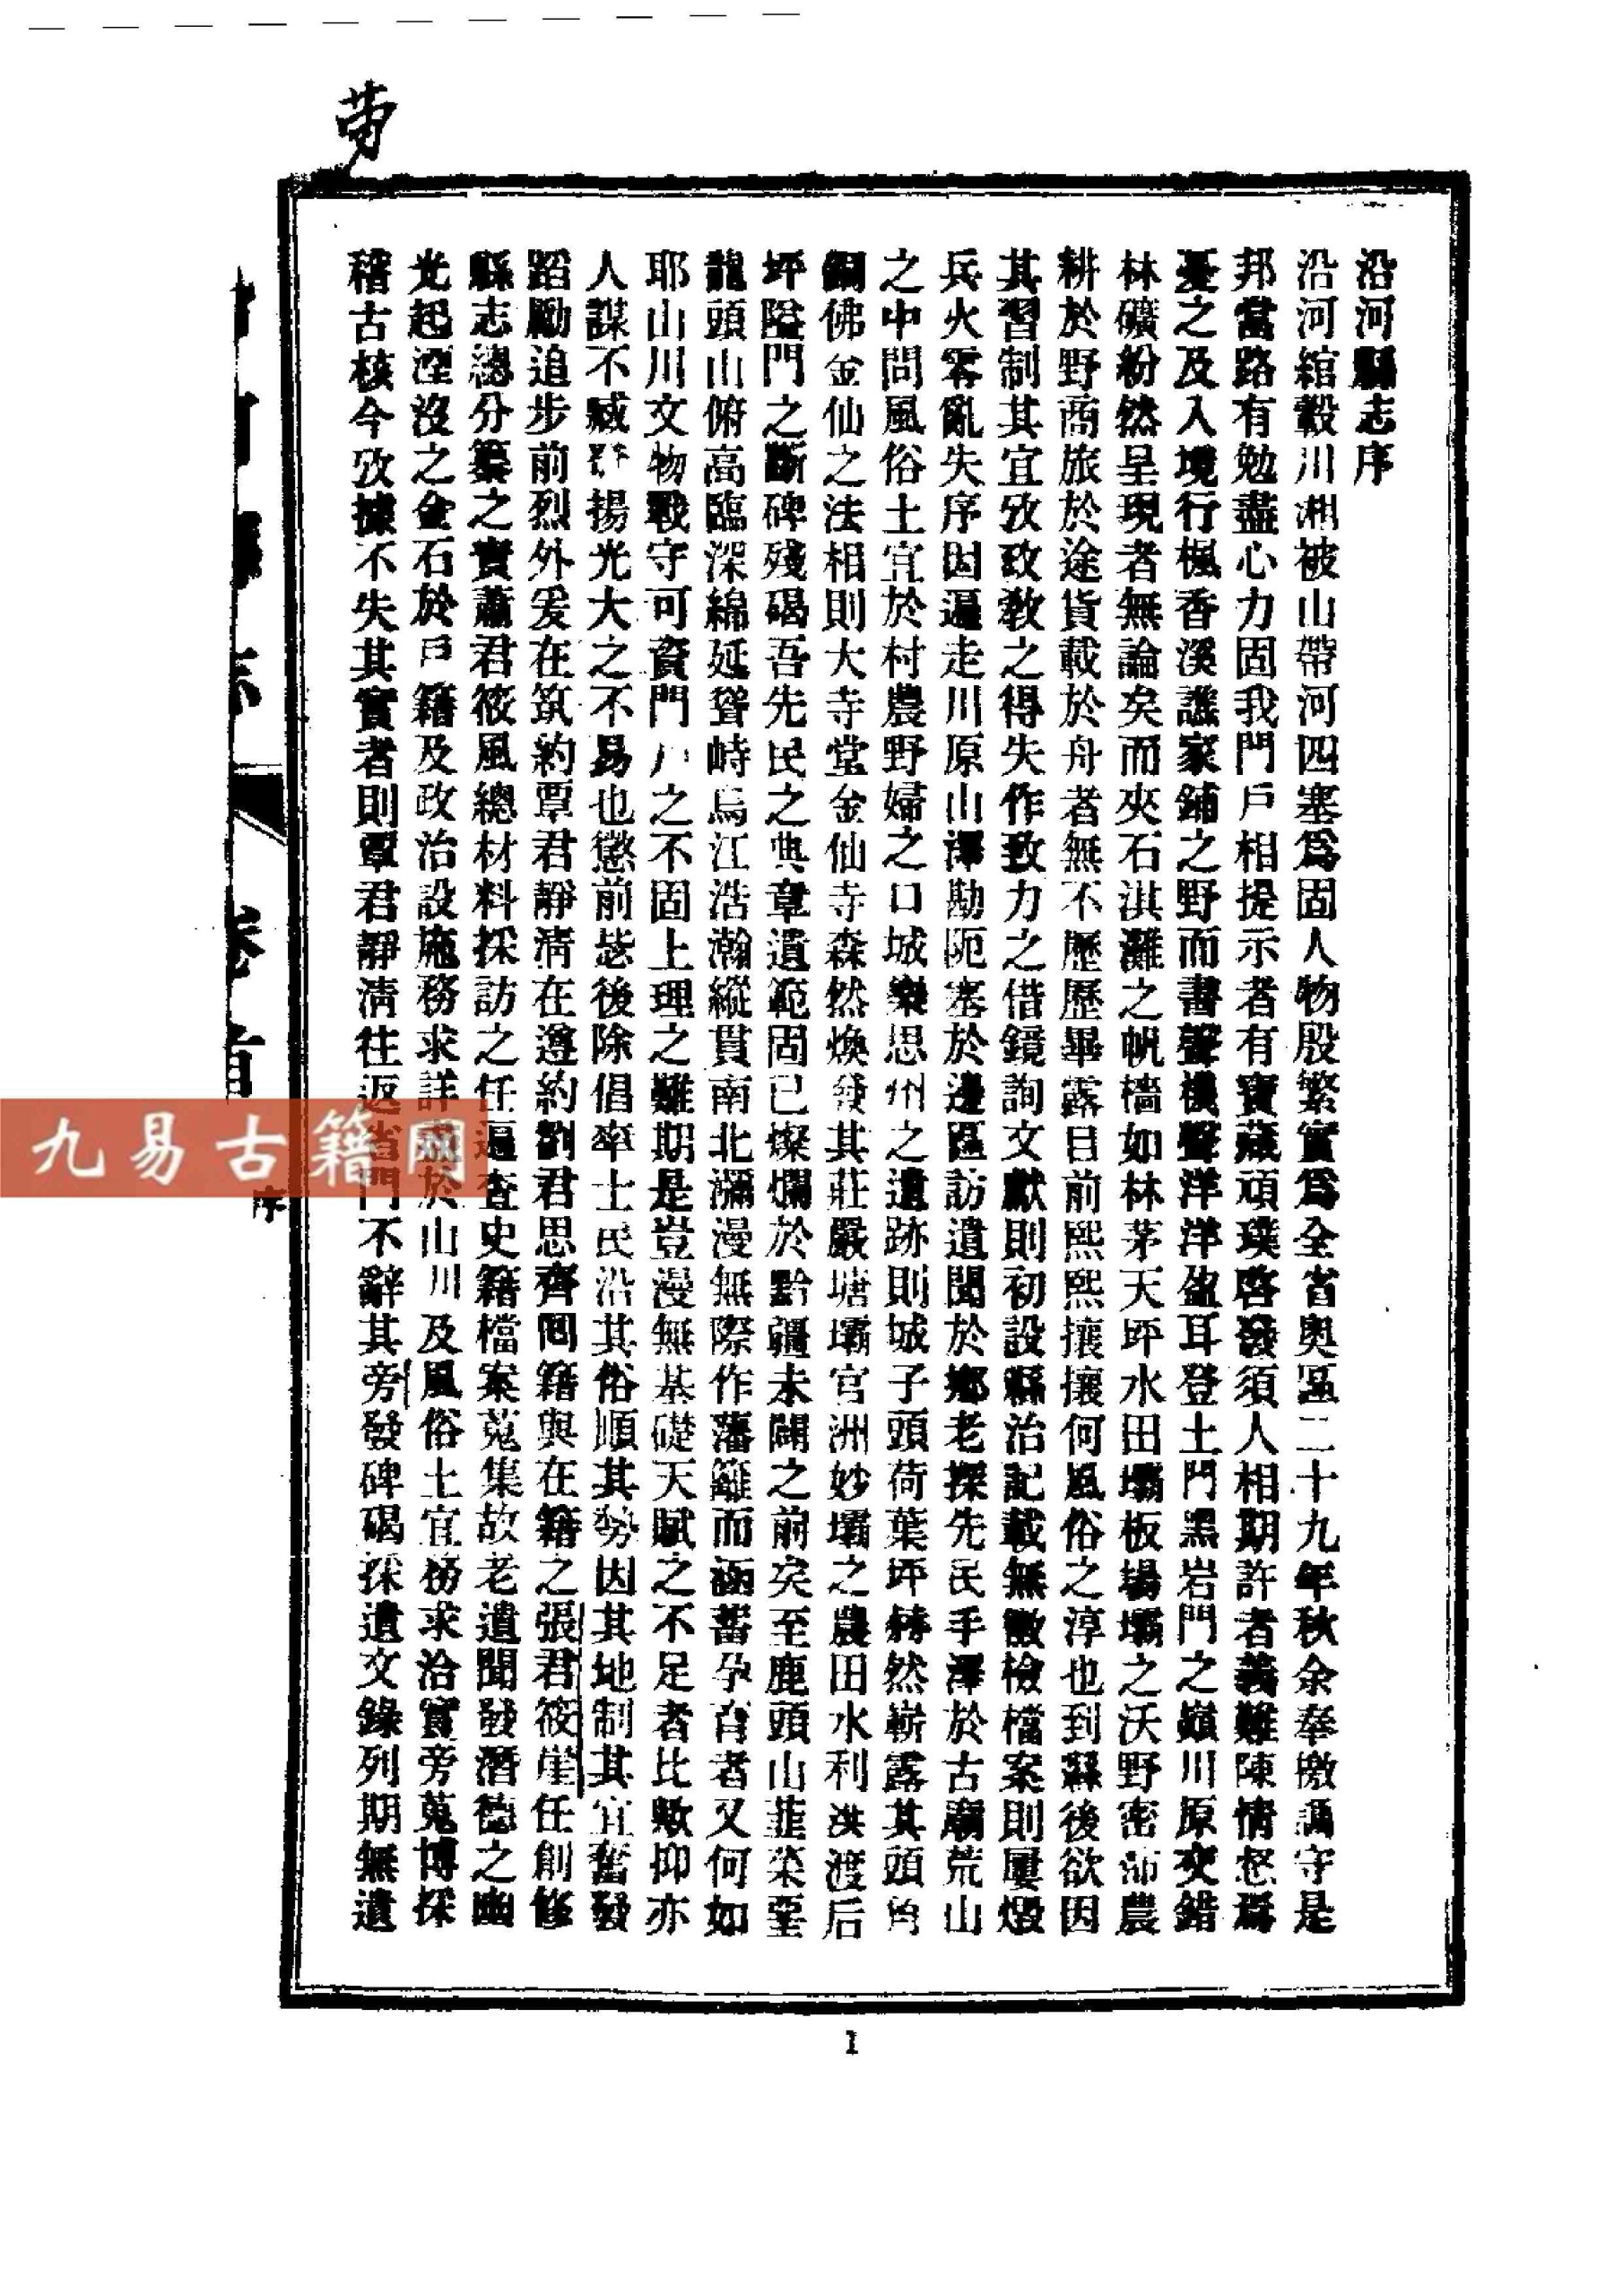 沿河縣志序
沿河綰轂川湘被山帶河四塞爲固人物殷繁實爲全省奧區二十九年秋余奉檄誦守是
邦當路有勉盡心力固我門戶相提示者有寶藏頑璞啓發須人相期許者義難陳情悠爲
憂之及入境行楓香溪譙家鋪之野而書聲機聲洋洋盈耳登土門黑岩門之巔川原交錯
林礦紛然呈現者無論矣而夾石淇灘之帆檣如林茅天坪水田壩板場壩之沃野密沛農
耕於野商旅於途貨載於舟者無不歷歷畢露目前熙熙攘攘何風俗之淳也到縣後欲因
其習制其宜攷政教之得失作致力之借鏡詢文獻則初設縣治記載無徵檢檔案則屢燬
兵火零亂失序因遍走川原山澤勘阨塞於邊區訪遺聞於鄉老探先民手澤於古廟荒山
之中問風俗土宜於村農野婦之口城樂思州之遺跡則城子頭荷葉坪赫然嶄露其頭角
銅佛金仙之法相則大寺堂金仙寺森然煥發其莊嚴塘壩官洲妙壩之農田水利洪渡后
坪隘門之斷碑殘碣吾先民之典章遺範固已燦爛於黔疆未闢之前矣至鹿頭山韮菜堊
龍頭山俯高臨深綿延聳峙烏江浩瀚縱貫南北瀰漫無際作藩籬而涵蓄孕育者又何如
耶山川文物戰守可資門戶之不固上理之難期是豈漫無基礎天賦之不足者比歟抑亦
人謀不臧發揚光大之不易也懲前毖後除倡率士民沿其俗順其勢因其地制其宜奮發
蹈勵追步前烈外爰在筑約覃君靜淸在遵約劉君思齊囘籍與在籍之張君筱崖任創修
縣志總分纂之實蕭君筱風總材料採訪之任遍查史籍檔案蒐集故老遺聞發潛德之幽
光起湮沒之金石於戶籍及政治設施務求詳 於山川及風俗土宜務求洽實旁蒐博採
稽古核今攷據不失其實者則覃君靜淸往返省門不辭其旁發碑碣採遺文錄列期無遺
劳
卷首
序
1
九易古籍网